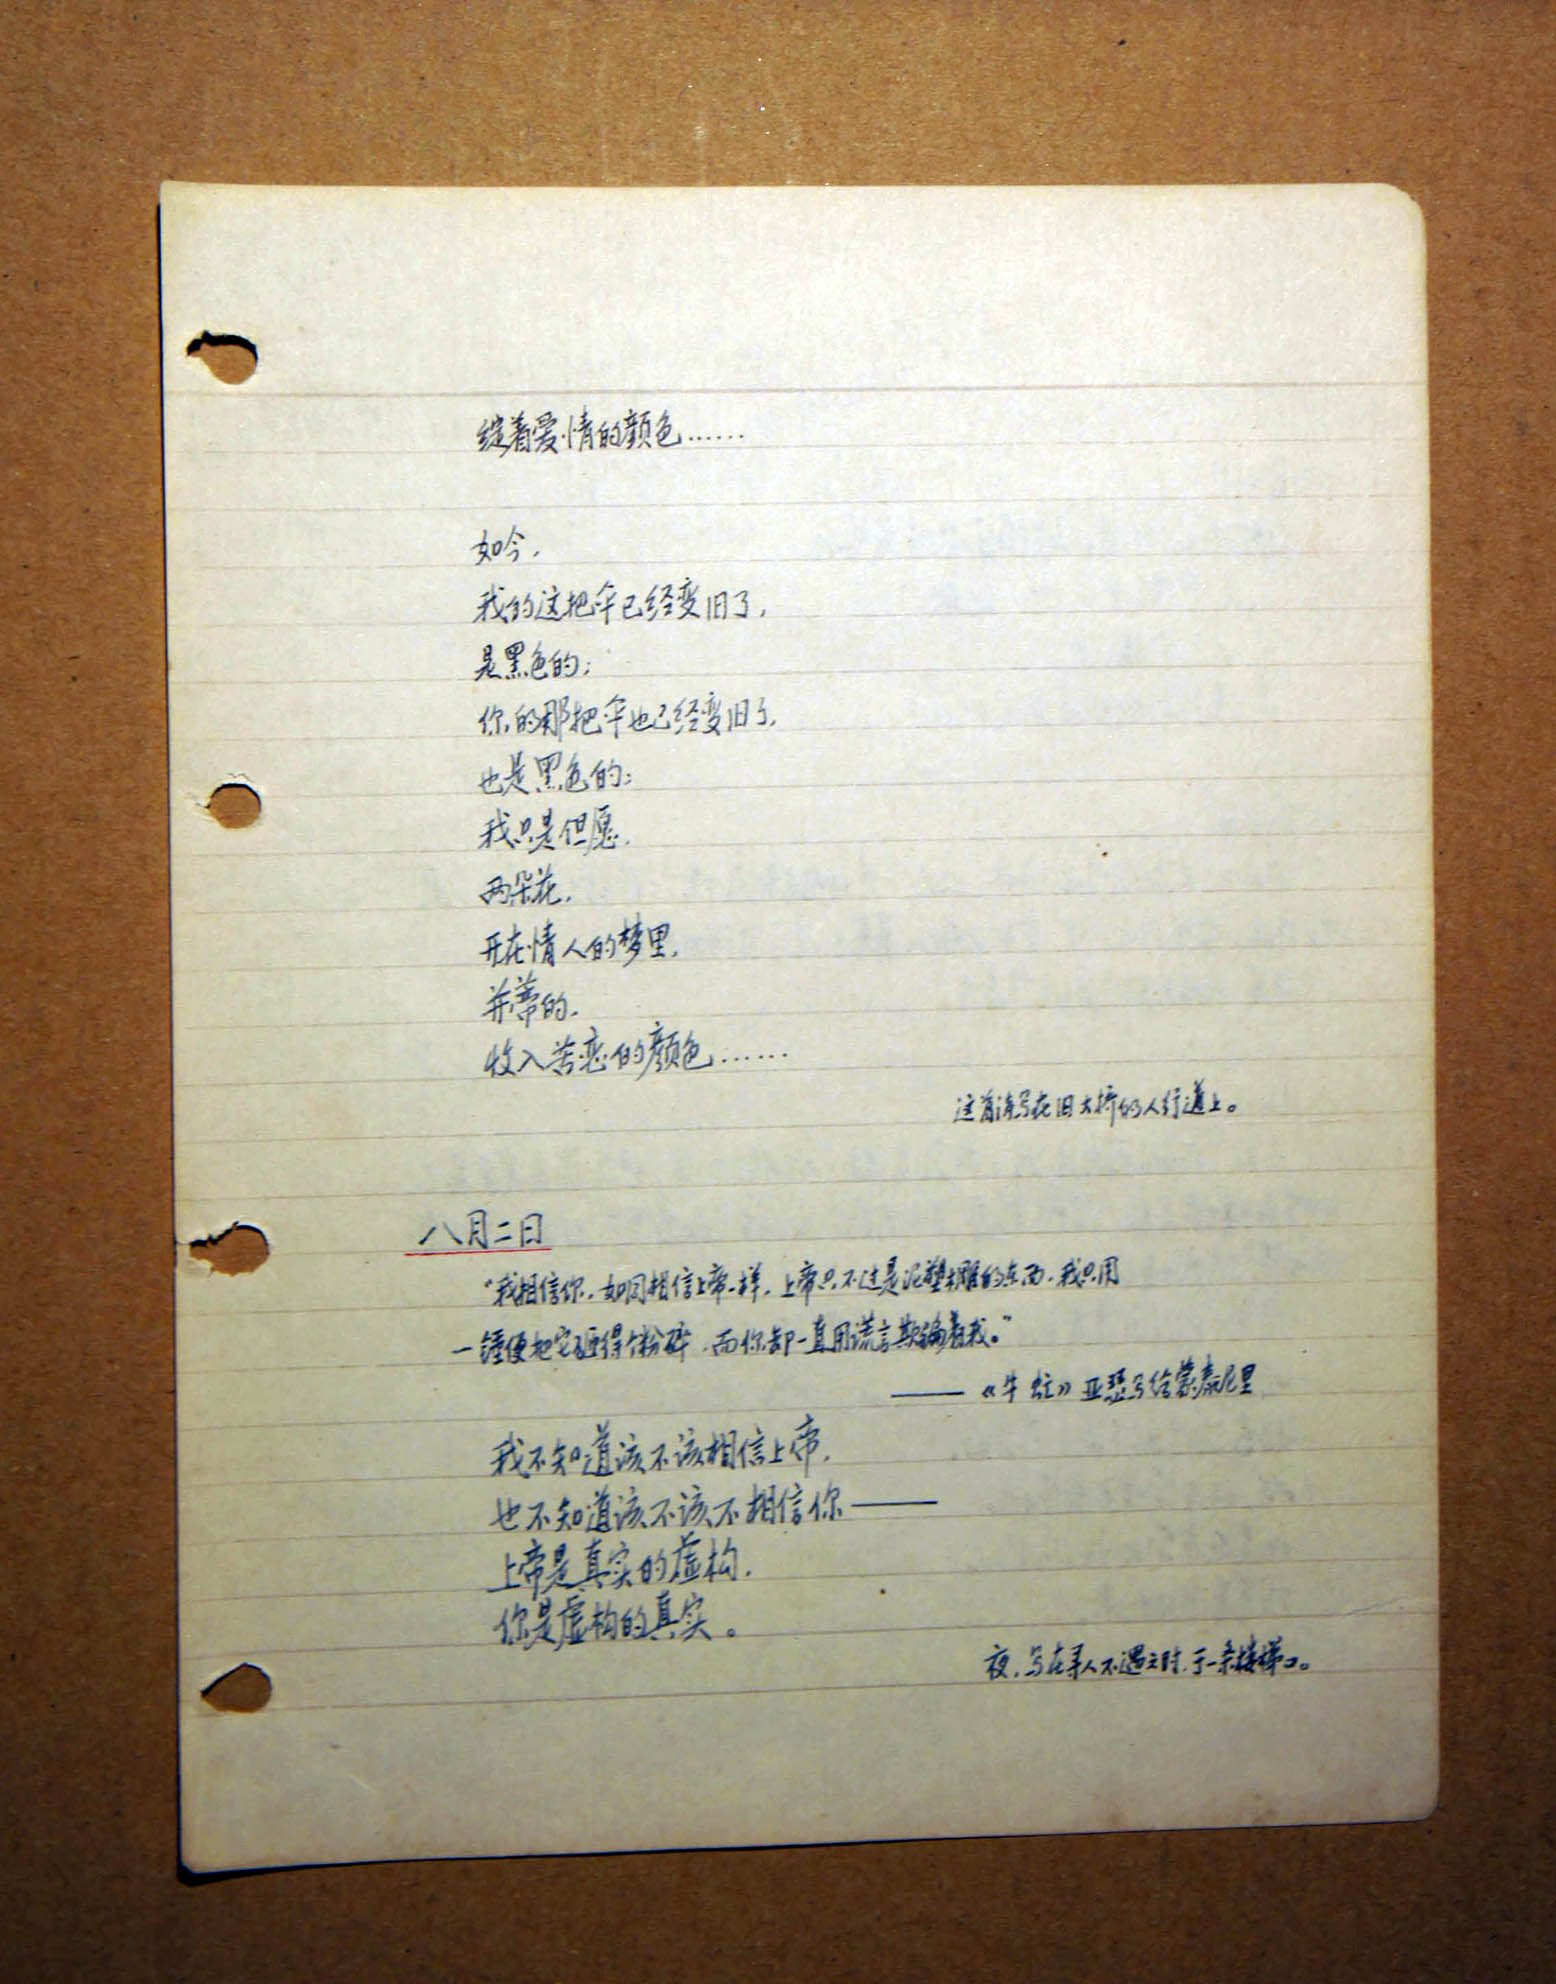 绽着爱情的颜色……
如今，
我的这把伞已经变旧了，
是黑色的；
你的那把伞也已经变旧了，
也是黑色的；
我只是但愿，
两朵花，
开在情人的梦里，
并蒂的，
收入苦恋的颜色……
这首诗写在旧大桥的人行道上。
八月二日
“我相信你，如同相信上帝一样，上帝只不过是泥塑木雕的东西，我只用
一锤便把它砸得个粉碎，而你却一直用谎言欺骗着我。”
——《牛虻》亚瑟写给蒙泰尼里
我不知道该不该相信上帝，
也不知道该不该不相信你——
上帝是真实的虚构，
你是虚构的真实。
夜，写在寻人不遇之时，于一条楼梯口。